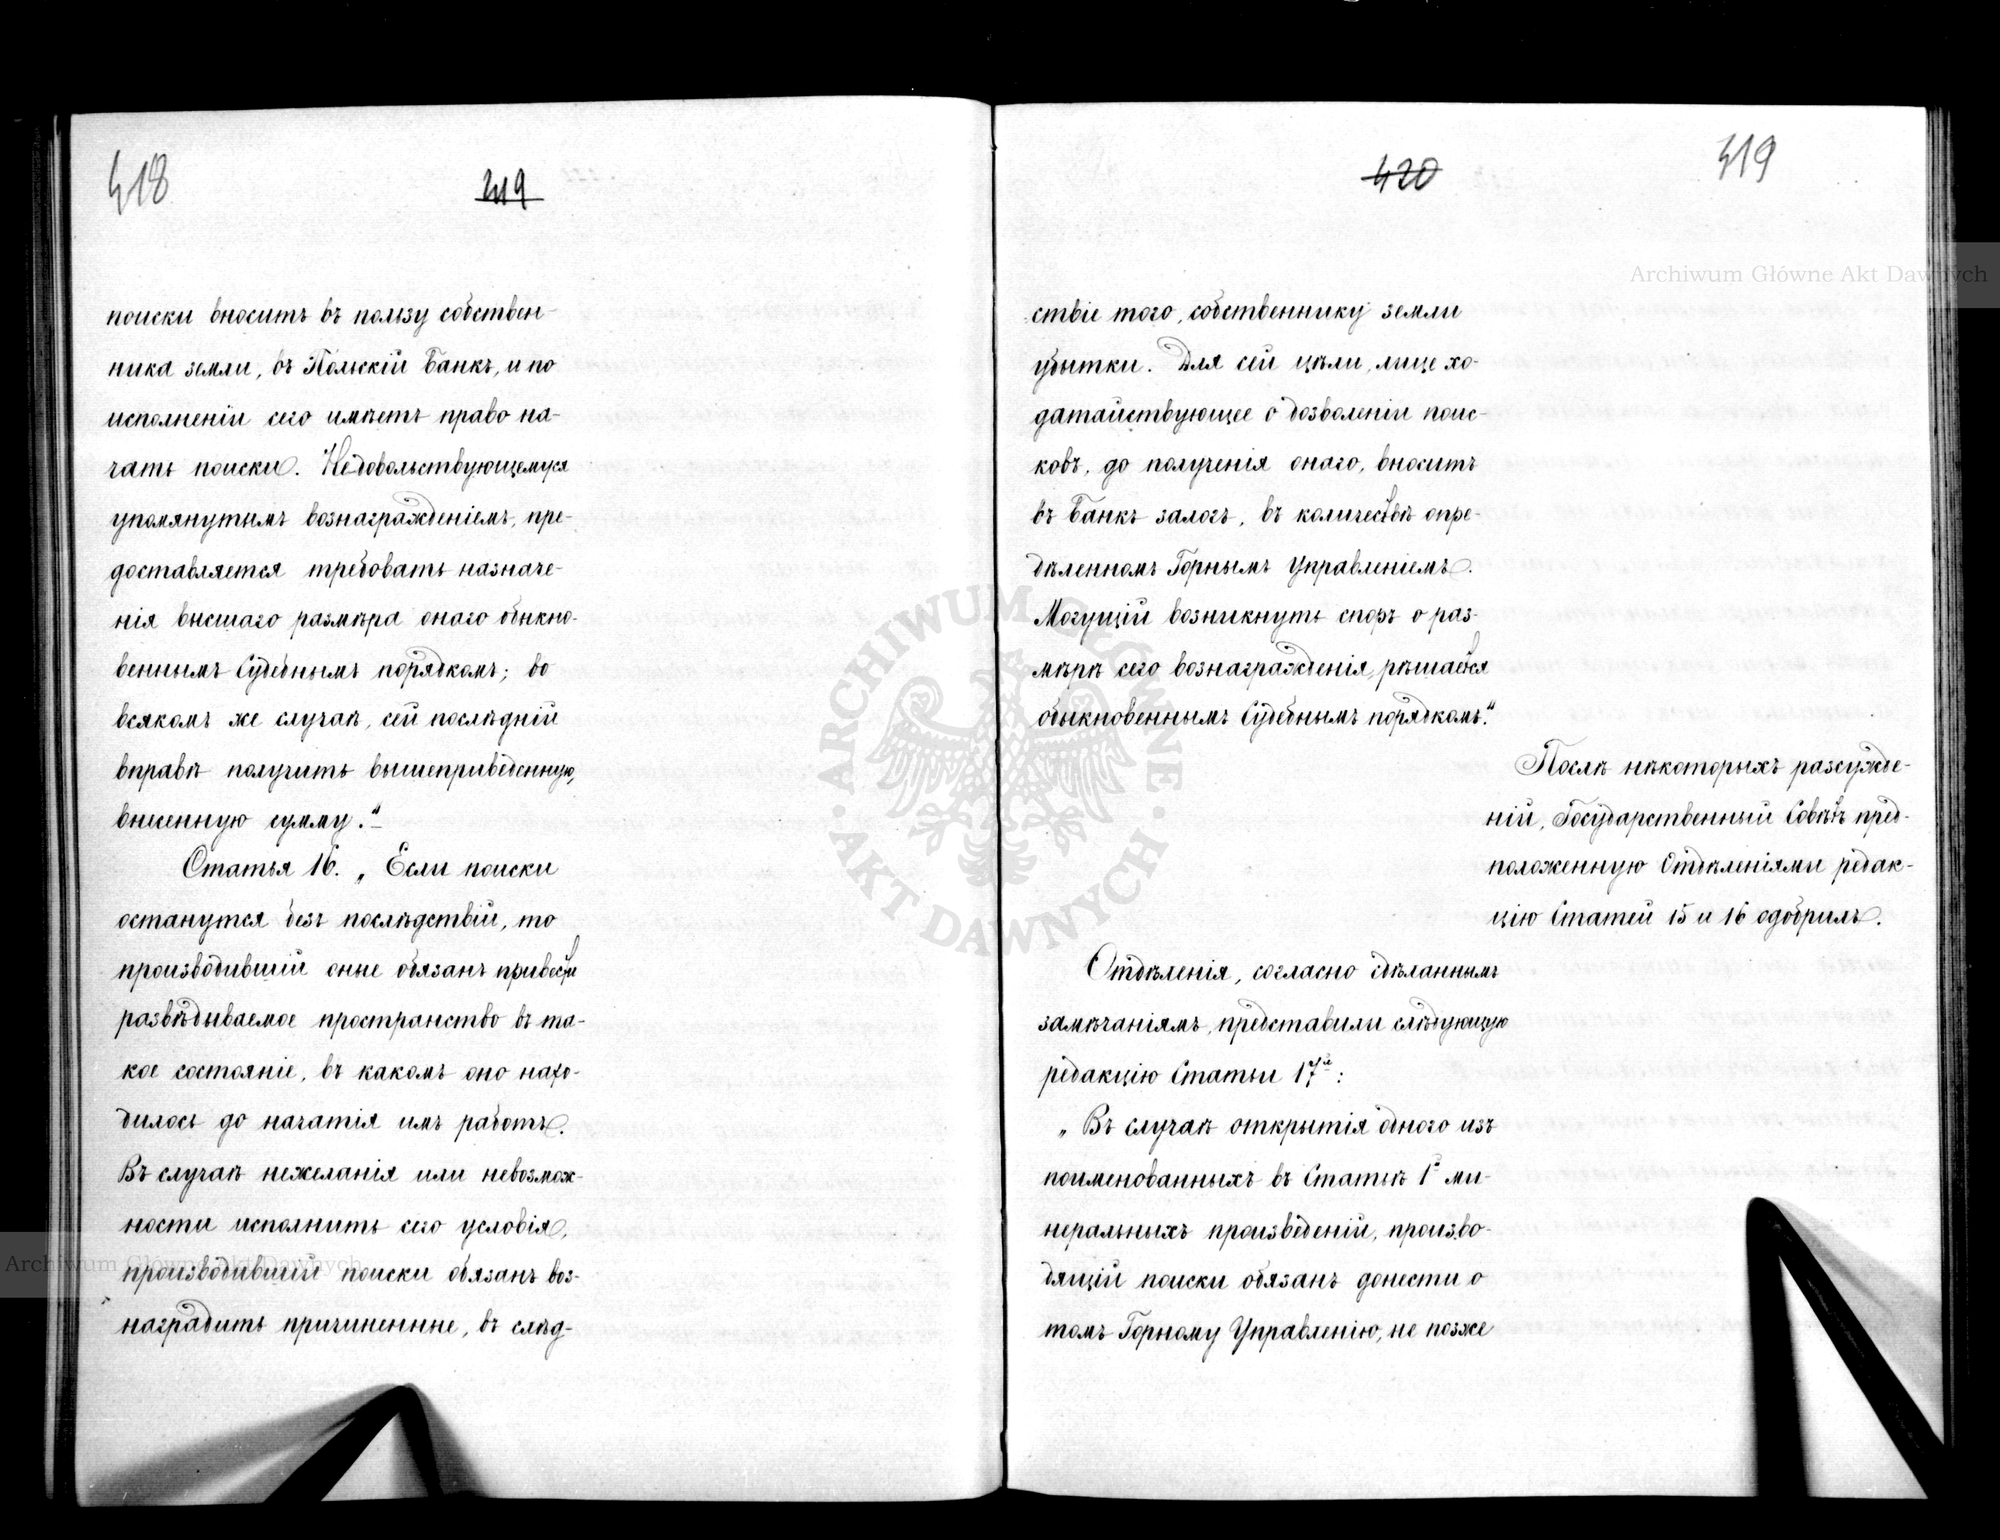 418
419
поиски вноситъ въ пользу собствен-
ника земли, въ Польскій Банкъ, и по
исполненіи сего имѣетъ право на-
чать поиски. Недовольствующемуся
упомянутымъ вознагражденіемъ, пре-
доставляется требовать назначе-
нія высшаго размѣра онаго обыкно-
веннымъ Судебнымъ порядкомъ; во
всякомъ же случаѣ, сей послѣдній
вправѣ получить вышеприведенную,
внесенную сумму."
Статья 16. „Если поиски
останутся безъ послѣдствій, то
производившій оные обязанъ привести
развѣдываемое пространство въ та-
кое состояніе, въ какомъ оно нахо-
дилось до начатія имъ работъ.
Въ случаѣ нежеланія или невозмож-
ности исполнить сего условія,
производившій поиски обязанъ воз-
наградить причиненные, въ слѣд-
420
419
ствіе того, собственнику земли
убытки. Для сей цѣли, лице хо-
датайствующее о дозволеніи поис-
ковъ, до полученія онаго, вноситъ
въ Банкъ залогъ, въ количествѣ опре-
дѣленномъ Горнымъ Управленіемъ.
Могущій возникнуть споръ о раз-
мѣрѣ сего вознагражденія, рѣшается
обыкновеннымъ Судебнымъ порядкомъ."
Послѣ нѣкоторыхъ разсужде-
ній, Государственный Совѣтъ пред-
положенную Отдѣленіями редак-
цію Статей 15 и 16 одобрилъ.
Отдѣленія, согласно сдѣланнымъ
замѣчаніямъ, представили слѣдующую
редакцію Статьи 17й:
„Въ случаѣ открытія одного изъ
поименованныхъ въ Статьѣ 1й ми-
неральныхъ произведеній, произво-
дящій поиски обязанъ донести о
томъ Горному Управленію, не позже
Archiwum Główne Akt Dawnych
Archiwum Główne Akt Dawnych
ARCHIWUM GŁÓWNE · AKT DAWNYCH ·